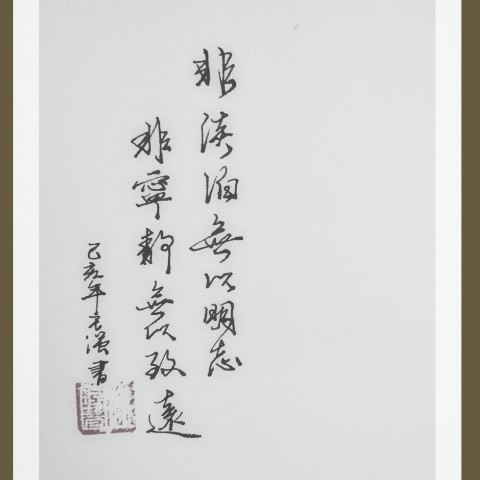 非淡泊無以明志
非寧靜無以致遠
己亥年 書